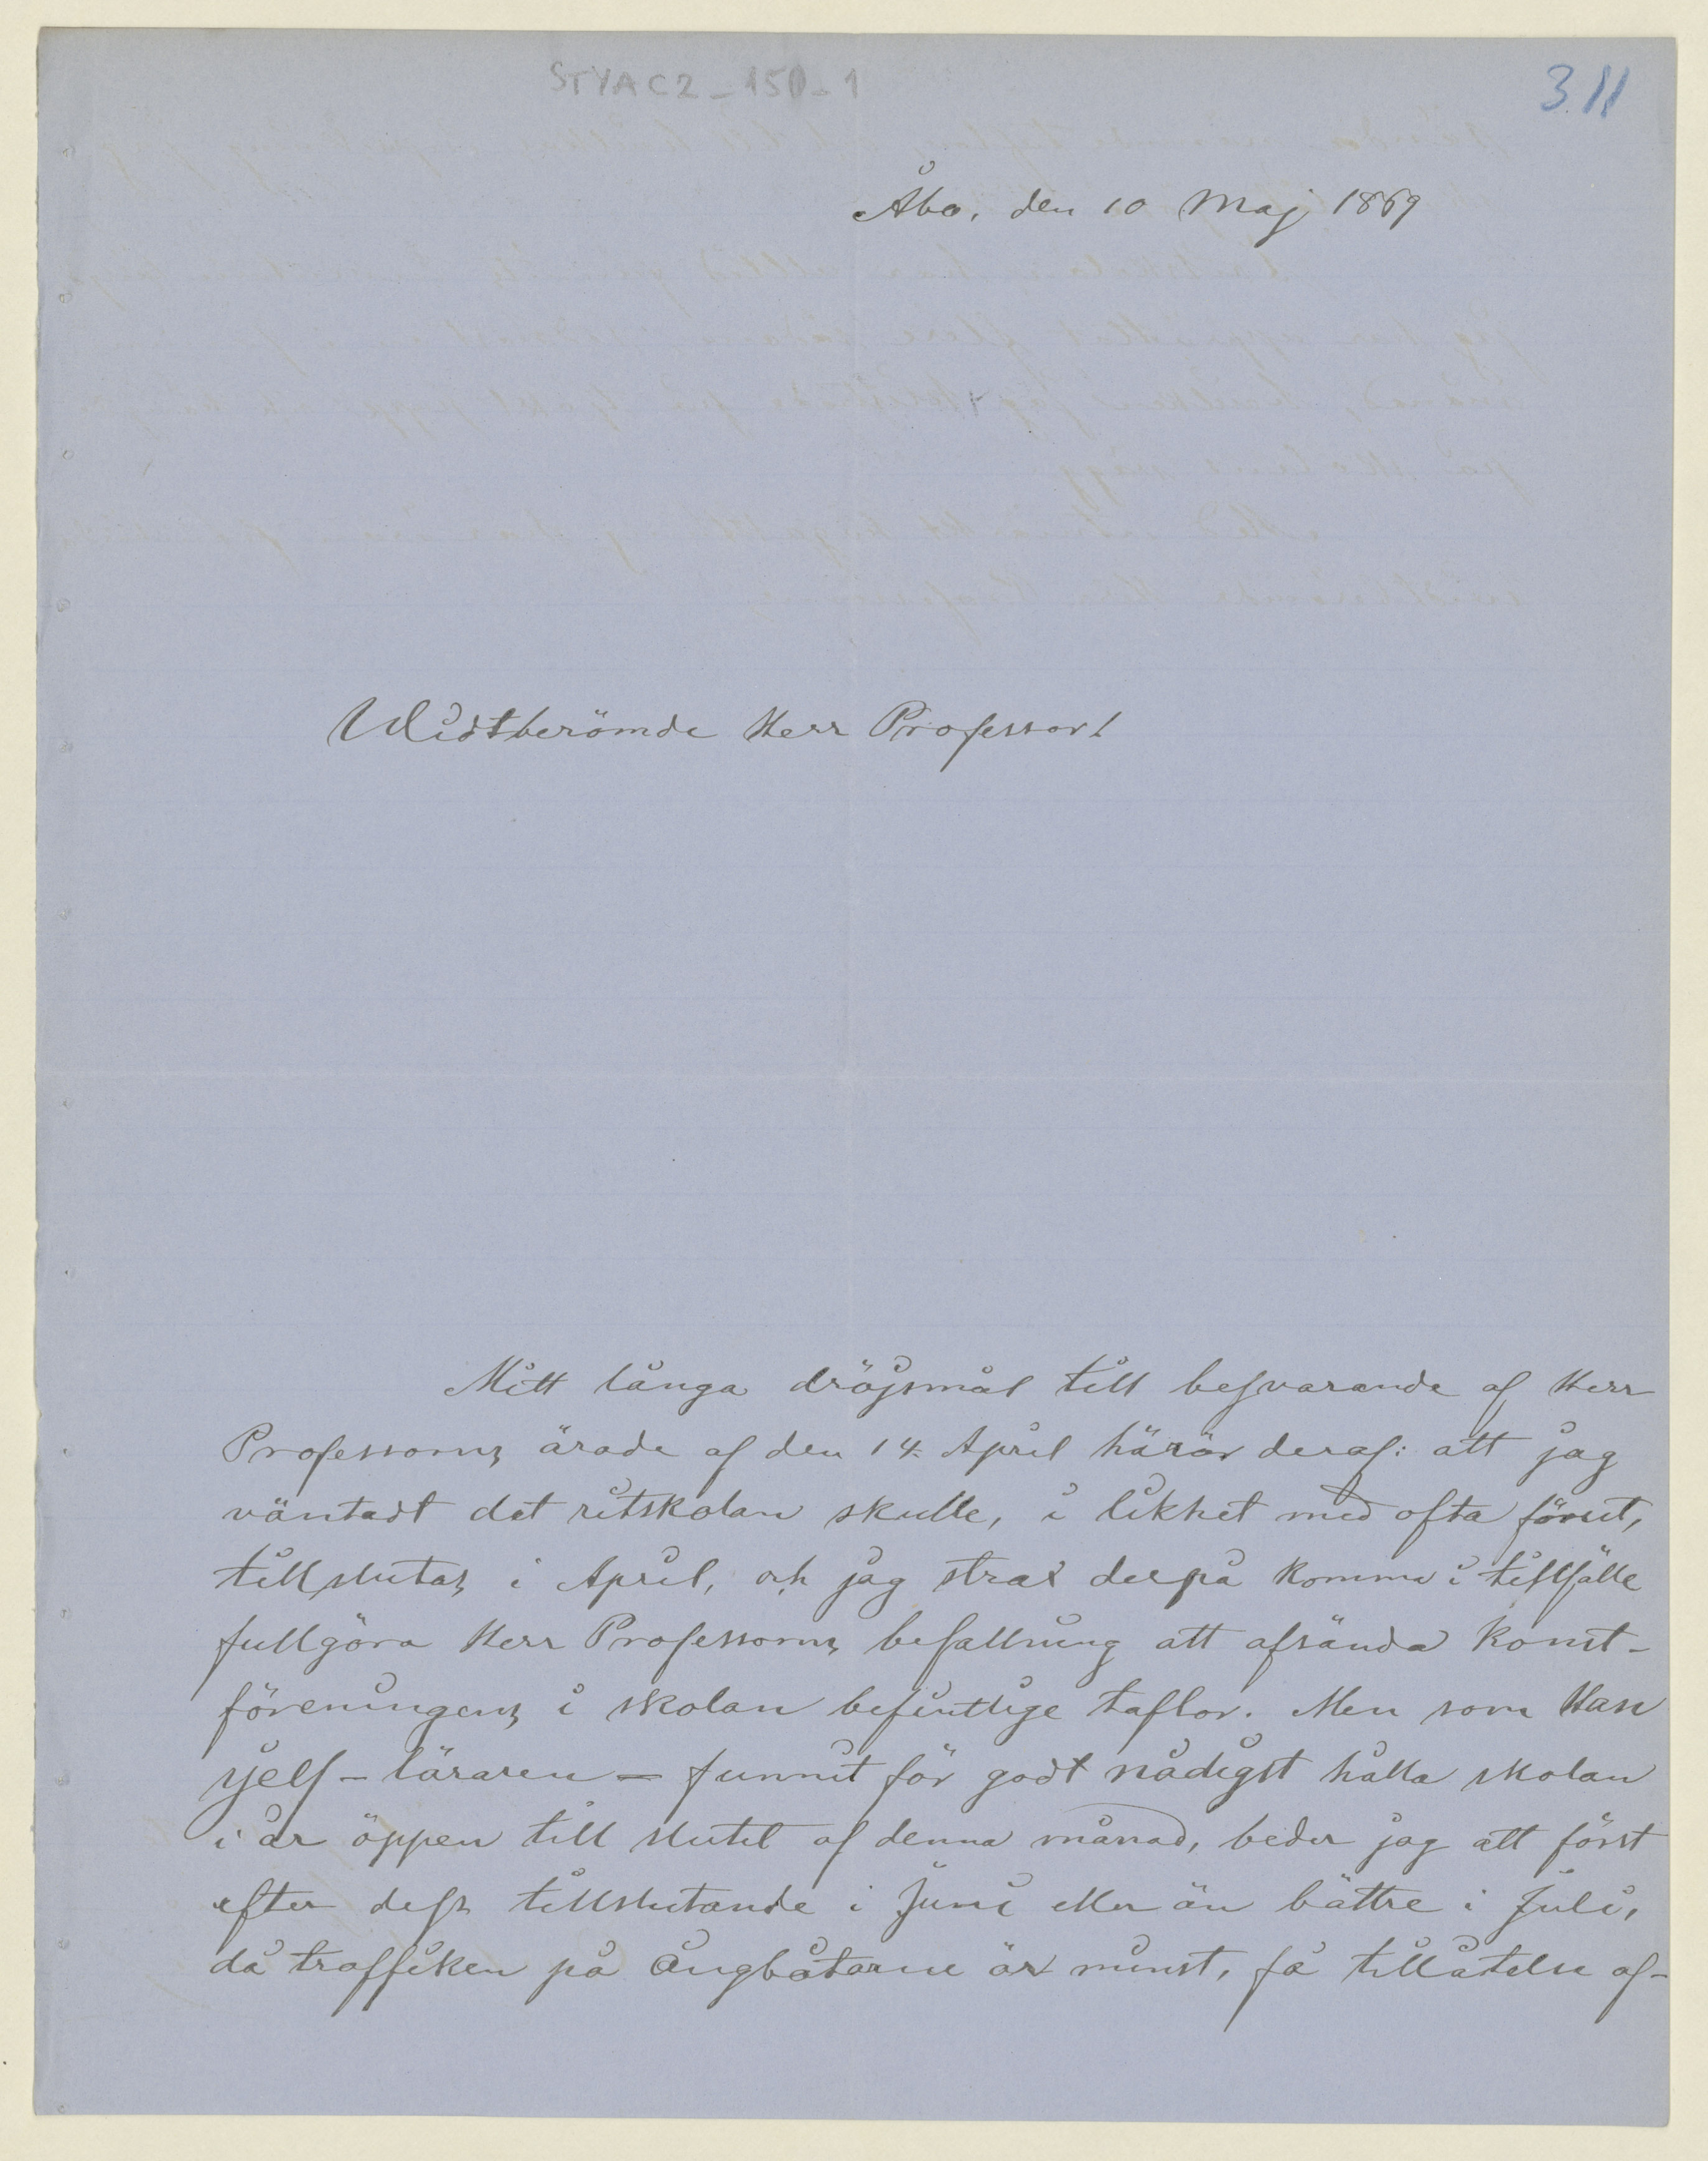 STYA C2 - 150 - 1
3.11
Åbo, den 10 Maj 1869
Widtberömde Herr Professor!
Mitt långa dröjsmål till besvarande af Herr
Professorns ärade af den 14 April härör deraf: att jag
väntadt det ritskolan skulle, i likhet med ofta förut,
tillslutas i April, och jag strax derpå komma i tillfälle
fullgöra Herr Professorns befallning att afsända Konst-
föreningens i skolan befintlige taflor. Men som Han
sjelf - läraren - funnit för godt nådigst hålla skolan
i år öppen till slutet af denna månad, beder jag att först
efter dess tillslutande i Juni eller än bättre i Juli,
då traffiken på ångbåtarne är minst, få tillåtelse af-